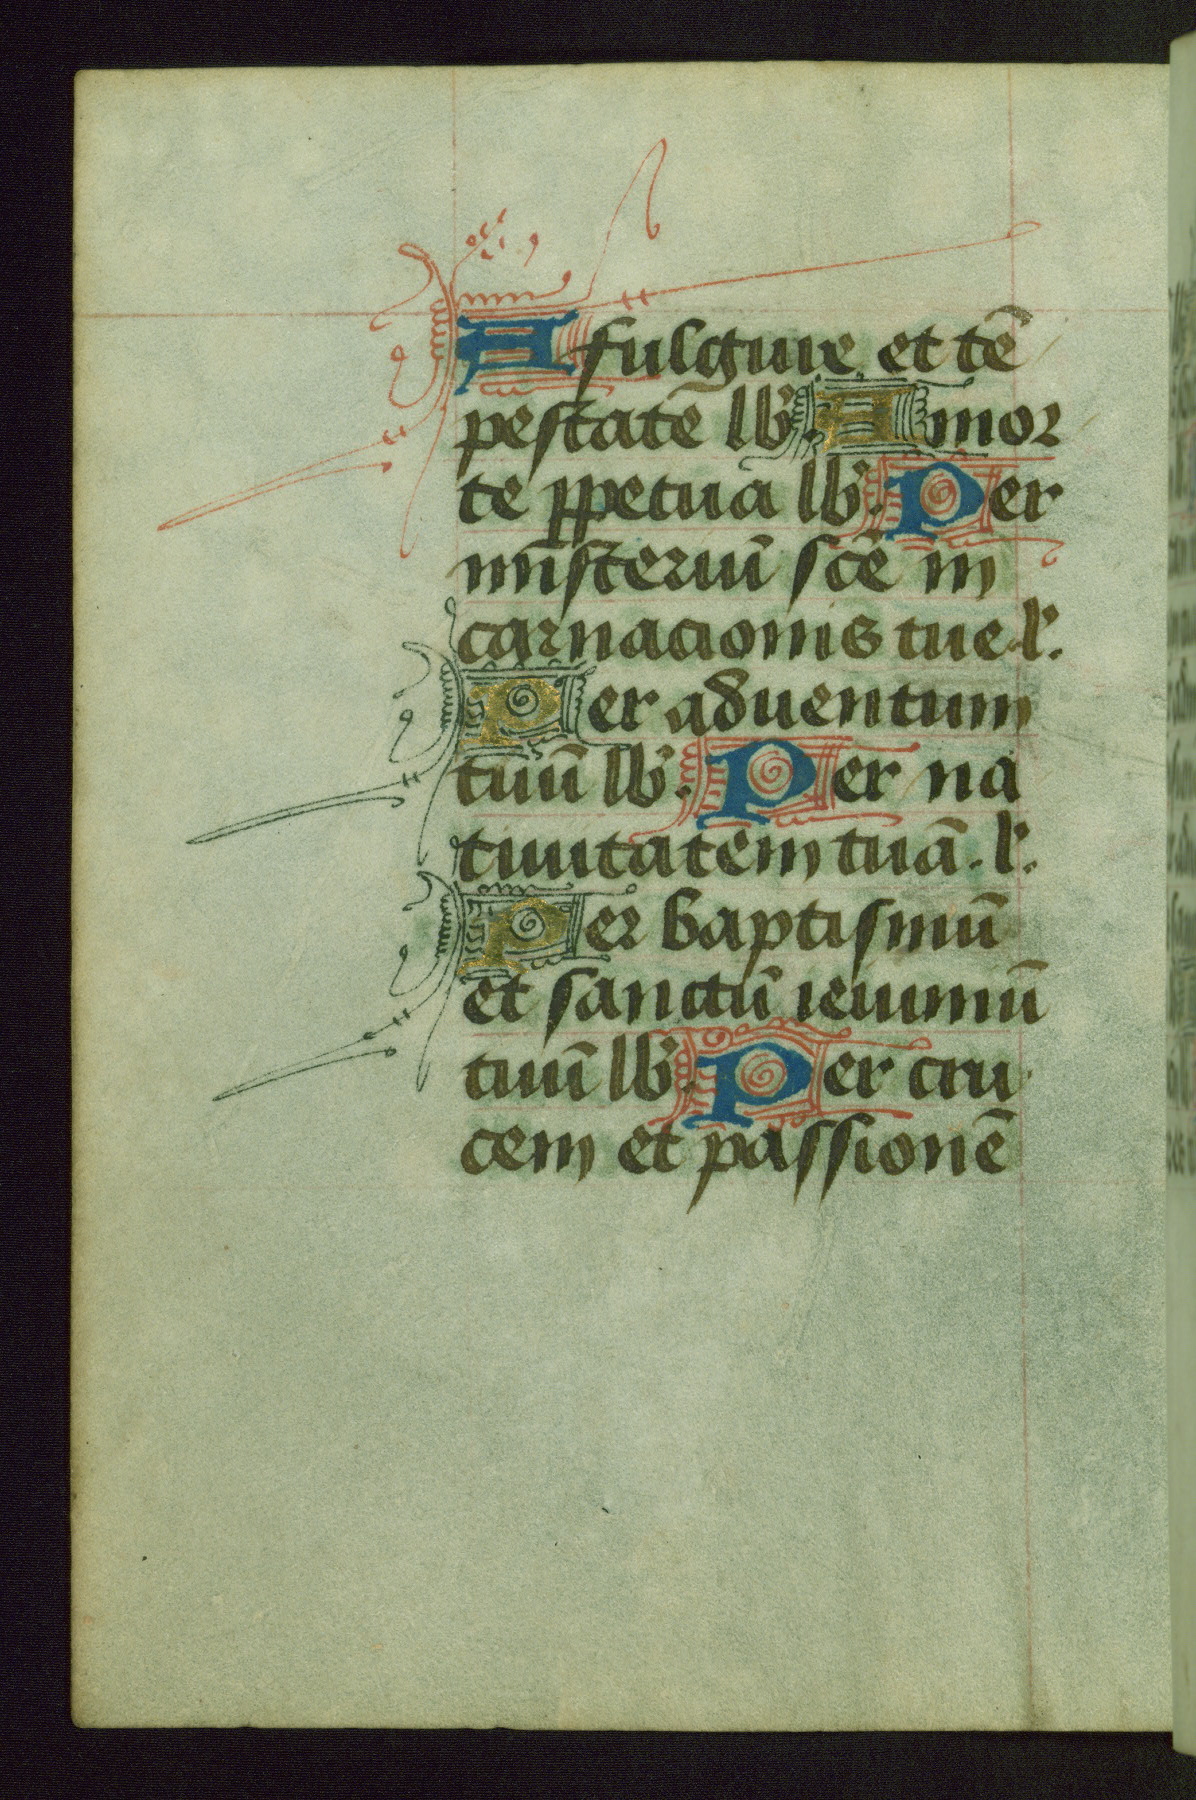 A fulgure et tē
pestatē lb̄. A mor
te ꝑpetua lb̄. Per
misteriū scē in
carnacionis tue. l̄.
Per aduentum
tuū lb̄. Per na
tiuitatem tuā. l̄.
Per baptismū
et sanctū ieiuniū
tuū lb̄. Per cru
cem et passionē